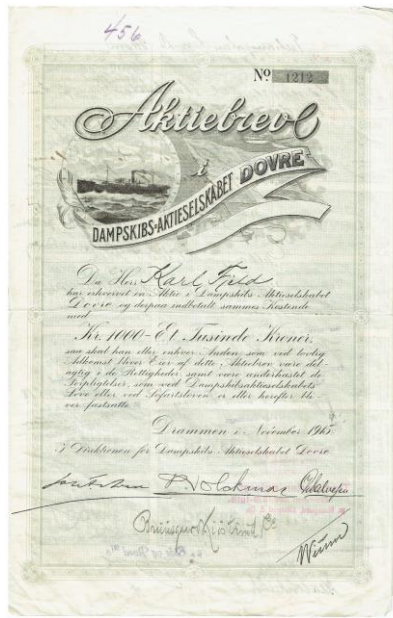 456
No 1212
Aktiebrev
i
DAMPSKIBS-AKTIESELSKABET DOVRE
Da Herr Karl Fjeld
har erhvervet en Aktie i Dampskibs-Aktieselskabet
Dovre og derpaa indbetalt sammes Kostende
med
Kr. 1000 - Et Tusinde Kroner,
saa skal han eller enhver Anden som ved lovlig
Adkomst bliver Eier af dette Aktiebrev være del-
agtig i de Rettigheder samt være underkastet de
Forpligtelser, som ved Dampskibsaktieselskabets
Love eller ved Sofartsloven er eller herefter bli-
ver fastsatte.
Drammen i November 1915
I Direktionen for Dampskibs-Aktieselskabet Dovre